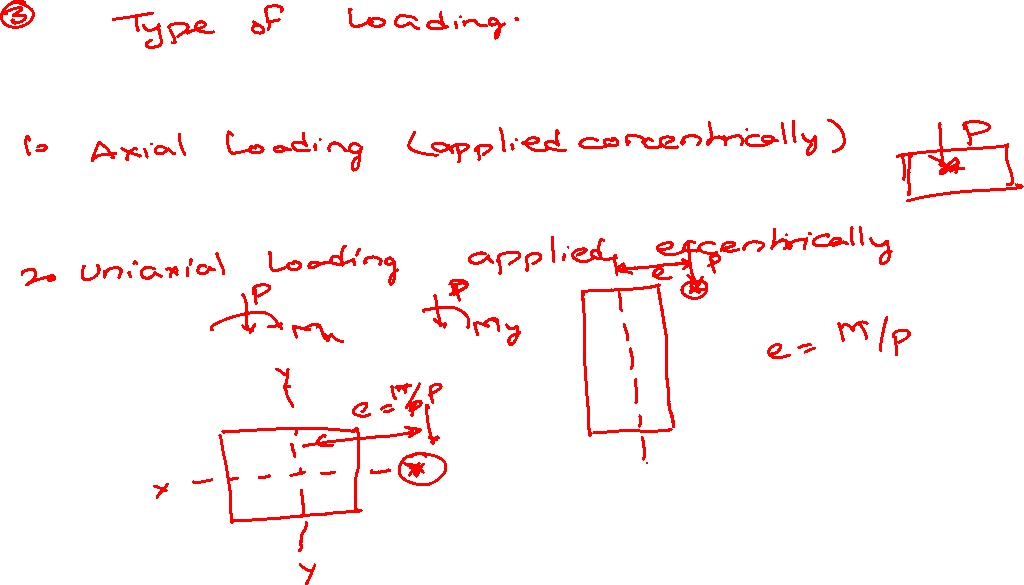 3 Type of Loading.
1. Axial Loading (applied concentrically) P
2. Uniaxial Loading applied eccentrically
e P
P Mx P My
e = M/P
y
e = M/P P
x
y